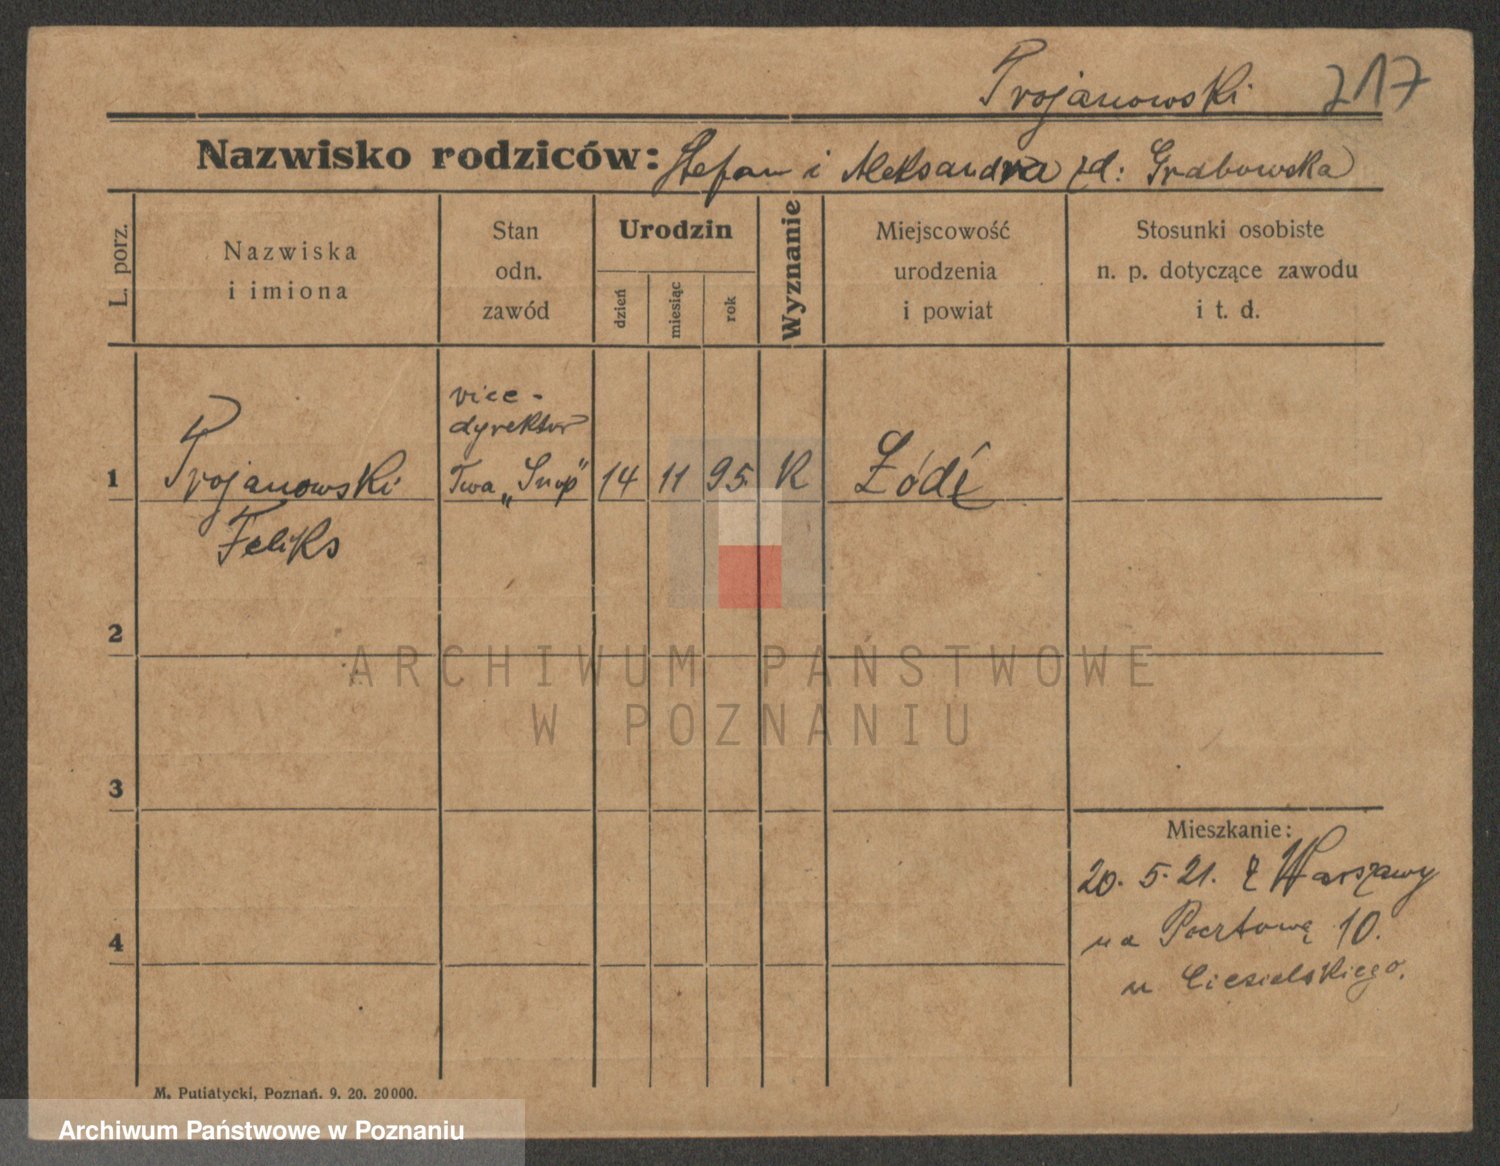 Trojanowski 217
Nazwisko rodziców: Stefan i Aleksandra zd: Grabowska
L. porz.
Nazwiska
i imiona
Stan
odn.
zawód
Urodzin
dzień
miesiąc
rok
Wyznanie
Miejscowość
urodzenia
i powiat
Stosunki osobiste
n. p. dotyczące zawodu
i t. d.
1
Trojanowski
Feliks
vice-
dyrektor
Twa „Snop"
14
11
95
K
Łódź
2
3
4
Mieszkanie:
20. 5. 21. z Warszawy
na Pocztową 10.
u Ciesielskiego.
ARCHIWUM PAŃSTWOWE
W POZNANIU
M. Putiatycki, Poznań. 9. 20. 20000.
Archiwum Państwowe w Poznaniu